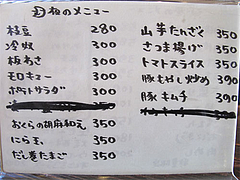 母姐のメニュー
枝豆 280
冷奴 300
板わさ 300
モロキュー 300
ポテトサラダ 300
おくらの胡麻和え 350
にら玉 350
だし巻たまご 350
山芋たんざく 350
さつま揚げ 350
トマトスライス 350
豚もやし炒め 390
豚キムチ 390